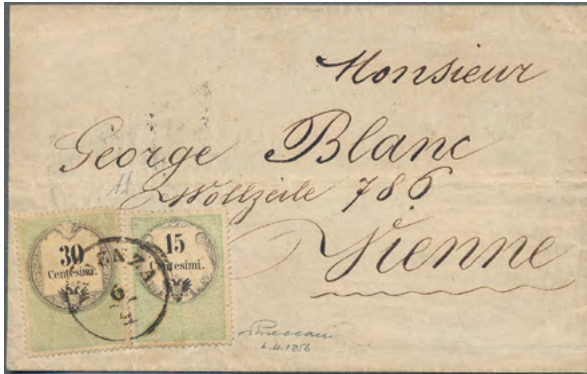 Monsieur
George Blanc
Wollzeile 786
Vienne
30
Centesimi.
15
Centesimi.
ENZA
6